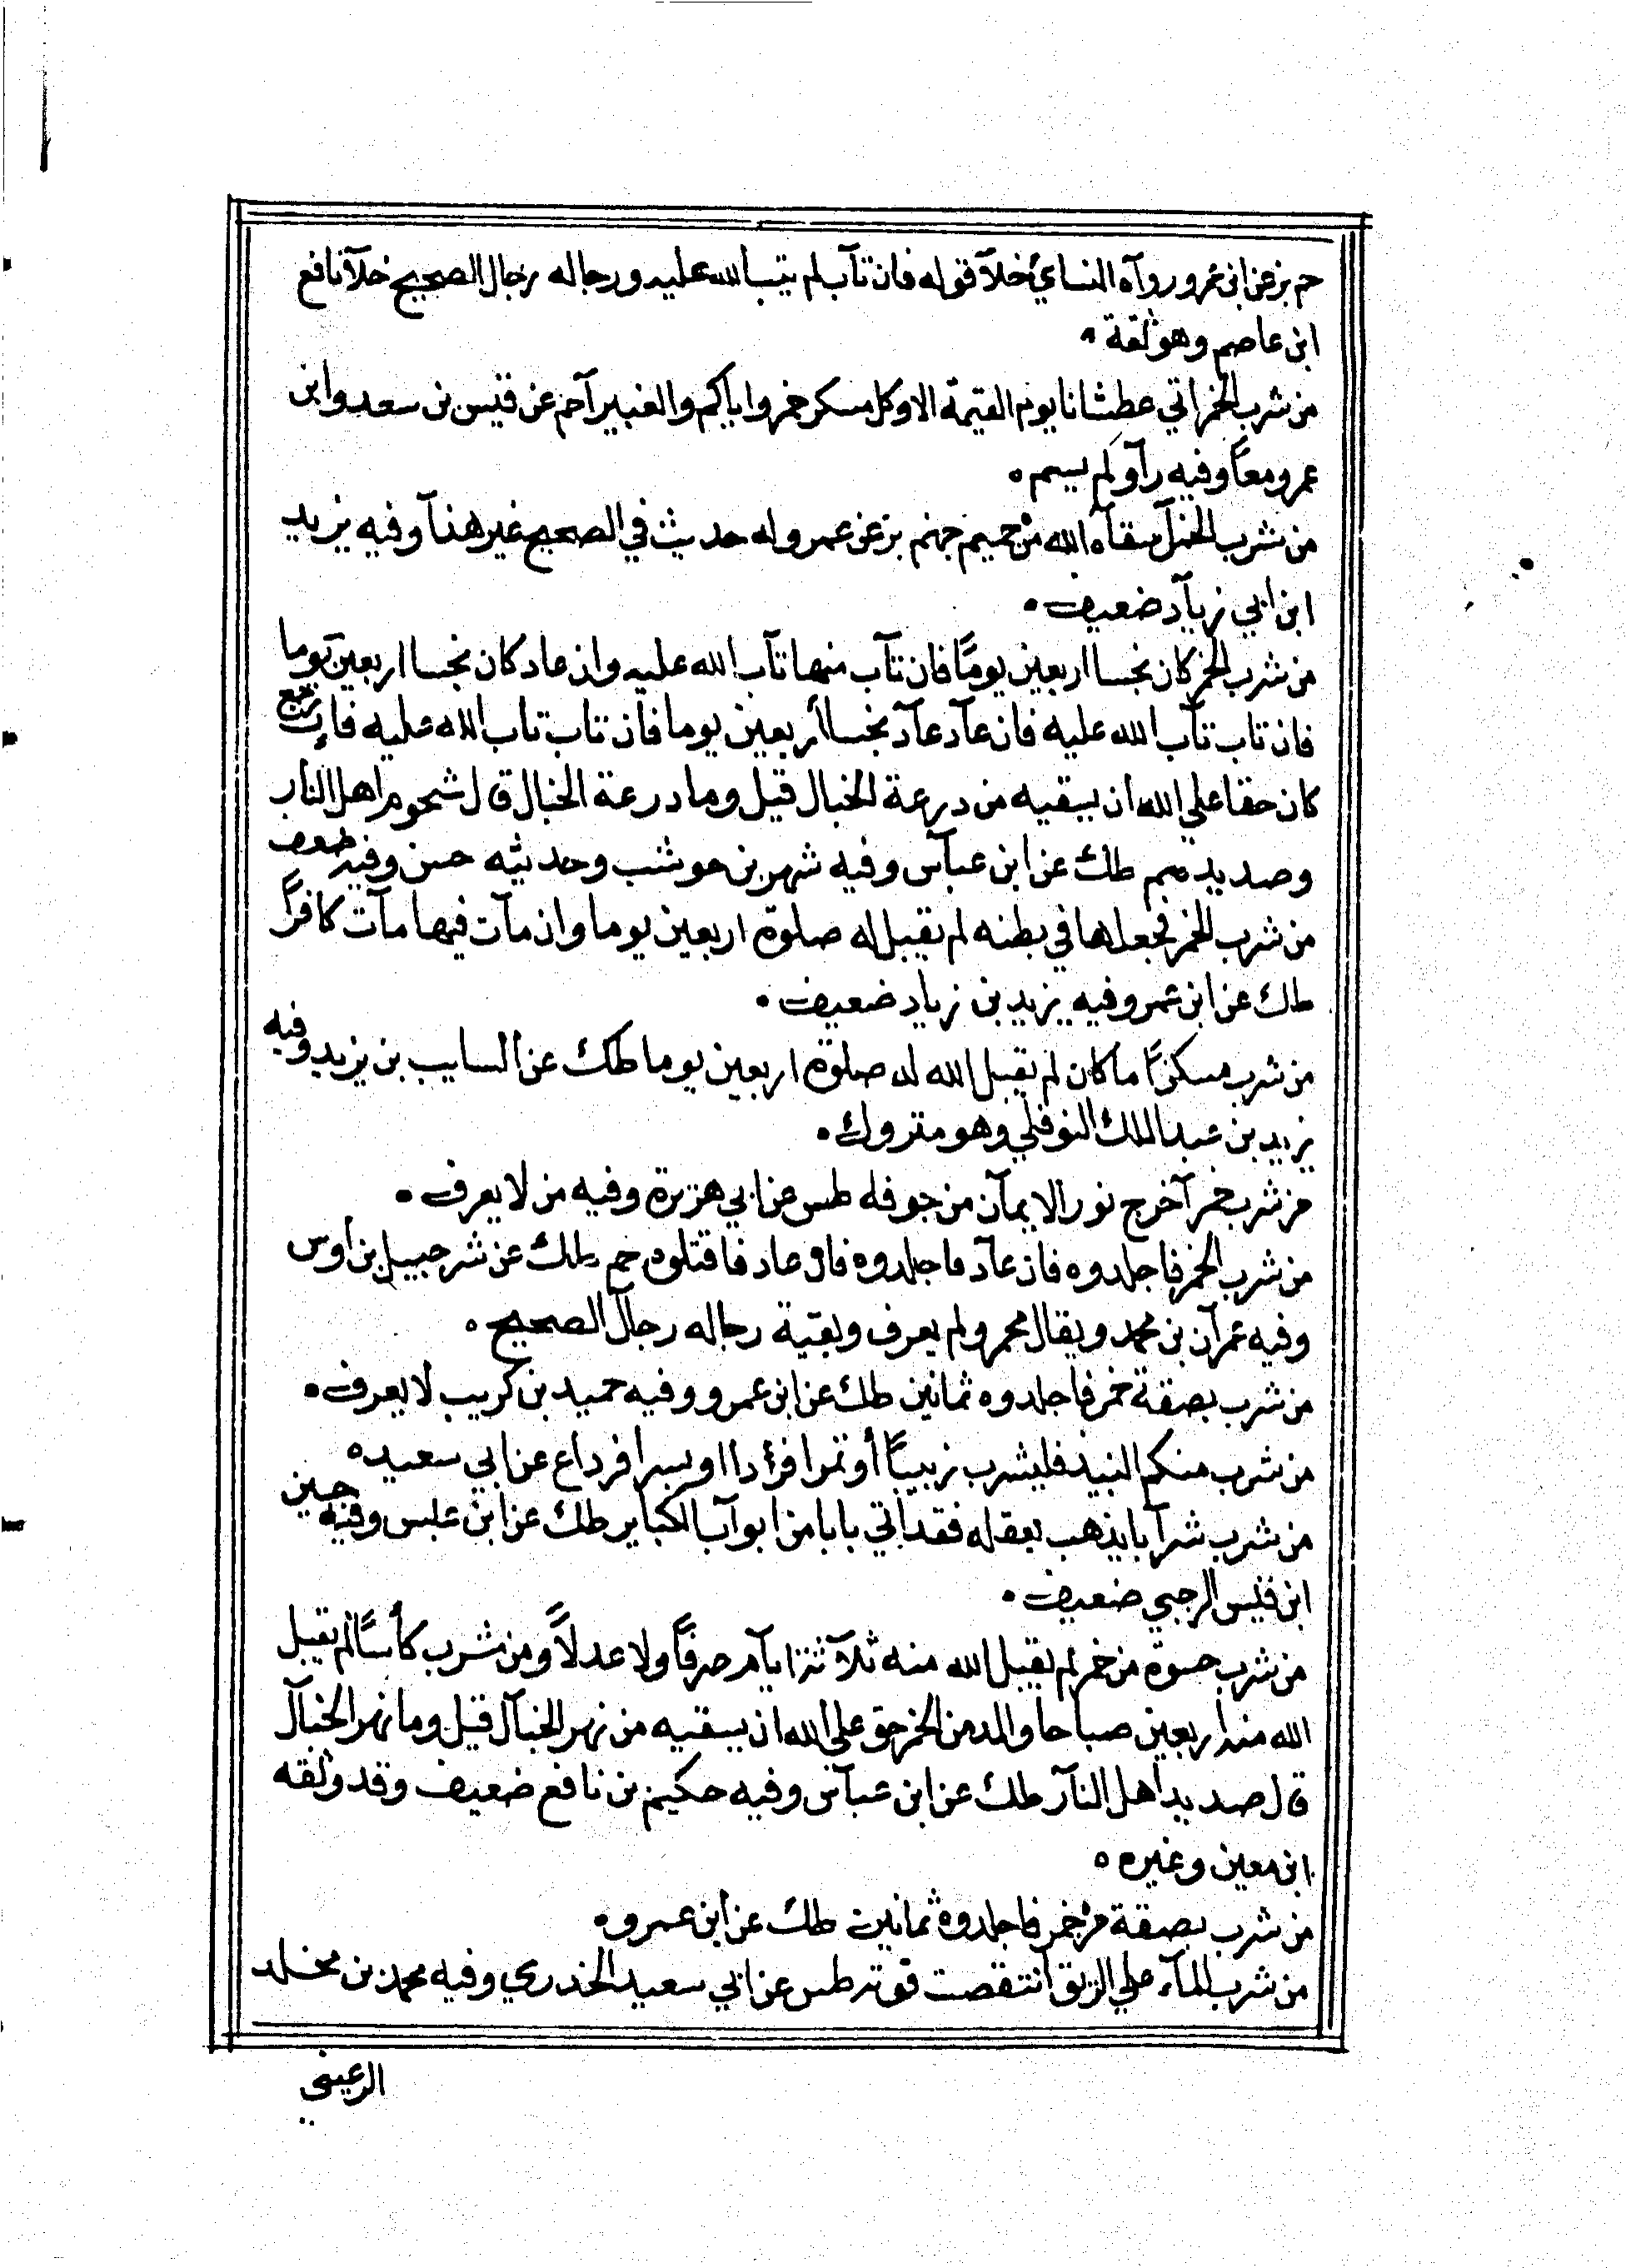 حم بز عن ابن عمرو ورواه النسائي خلا قوله فان تاب لم يتب الله عليه ورجاله رجال الصحيح خلا نافع
ابن عاصم وهو ثقة
من شرب الخمر اتي عطشانا يوم القيمة الا وكل مسكر خمر واياكم والغبيرا حم عن قيس بن سعد وابن
عمرو معا وفيه راو لم يسم
من شرب الخمر سقاه الله من حميم جهنم بز عن عمرو له حديث في الصحيح غير هذا وفيه يزيد
ابن ابي زياد ضعيف
من شرب الخمر كان نجسا اربعين يوما فان تاب منها تاب الله عليه وان عاد كان نجسا اربعين يوما
فان تاب تاب الله عليه فان عاد عاد نجسا أربعين يوما فان تاب تاب الله عليه فان ربع
كان حقا علي الله ان يسقيه من درعة الخبال قيل وما درعة الخبال قال شحوم اهل النار
وصديدهم طك عن ابن عباس وفيه شهر بن حوشب وحديثه حسن وفيه ضعف
من شرب الخمر فجعلها في بطنه لم يقبل له صلوة اربعين يوما وان مات فيها مات كافرا
طك عن ابن عمر وفيه يزيد بن زياد ضعيف
من شرب مسكرا ما كان لم يقبل الله له صلوة اربعين يوما طك عن السايب بن يزيد وفيه
يزيد بن عبد الملك النوفلي وهو متروك
من شرب خمرا خرج نور الايمان من جوفه طس عن ابي هريرة وفيه من لا يعرف
من شرب الخمر فاجلدوه فان عاد فاجلدوه فان عاد فاقتلوه حم طك عن شرحبيل بن أوس
وفيه عمران بن محمد ويقال محمر ولم يعرف وبقية رجاله رجال الصحيح
من شرب بصقة خمر فاجلدوه ثمانين طك عن ابن عمرو وفيه حميد بن كريب لا يعرف
من شرب منكم النبيذ فليشرب زبيبا أو تمرا فرادا او بسرا فرداع عن ابي سعيد
من شرب شرابا يذهب بعقله فقد اتي بابا من ابواب الكباير طك عن ابن عباس وفيه حسين
ابن قيس الرحبي ضعيف
من شرب حسوة من خمر لم يقبل الله منه ثلاثة ايام صرفا ولا عدلا ومن شرب كأسا لم يقبل
الله منه اربعين صباحا والمدمن الخمر حق علي الله ان يسقيه من نهر الخبال قيل وما نهر الخبال
قال صديد اهل النار طك عن ابن عباس وفيه حكيم بن نافع ضعيف وقد وثقه
ابن معين وغيره
من شرب بصقة من خمر فاجلدوه ثمانين طك عن ابن عمرو
من شرب الماء علي الريق انتقصت قوته طس عن ابي سعيد الخدري وفيه محمد بن مخلد
الرعيني